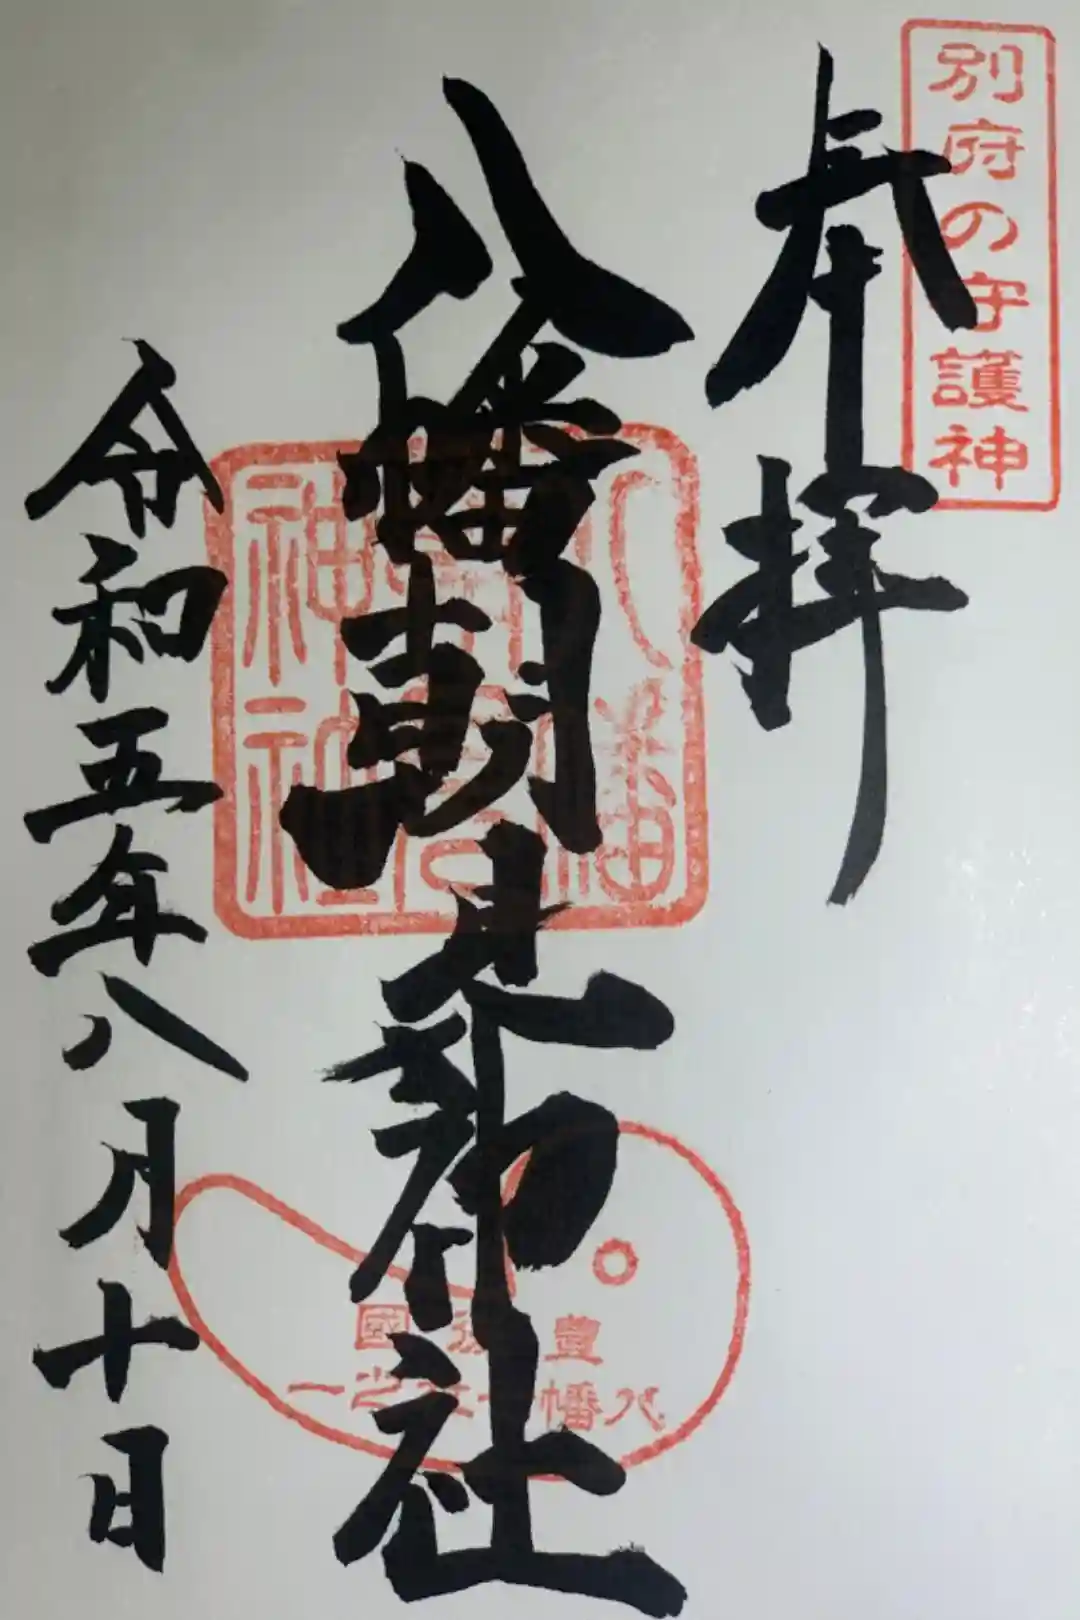 別府の守護神
奉拝
八幡朝見神社
八幡
神社
豊後國
八幡
之一
令和五年八月十日